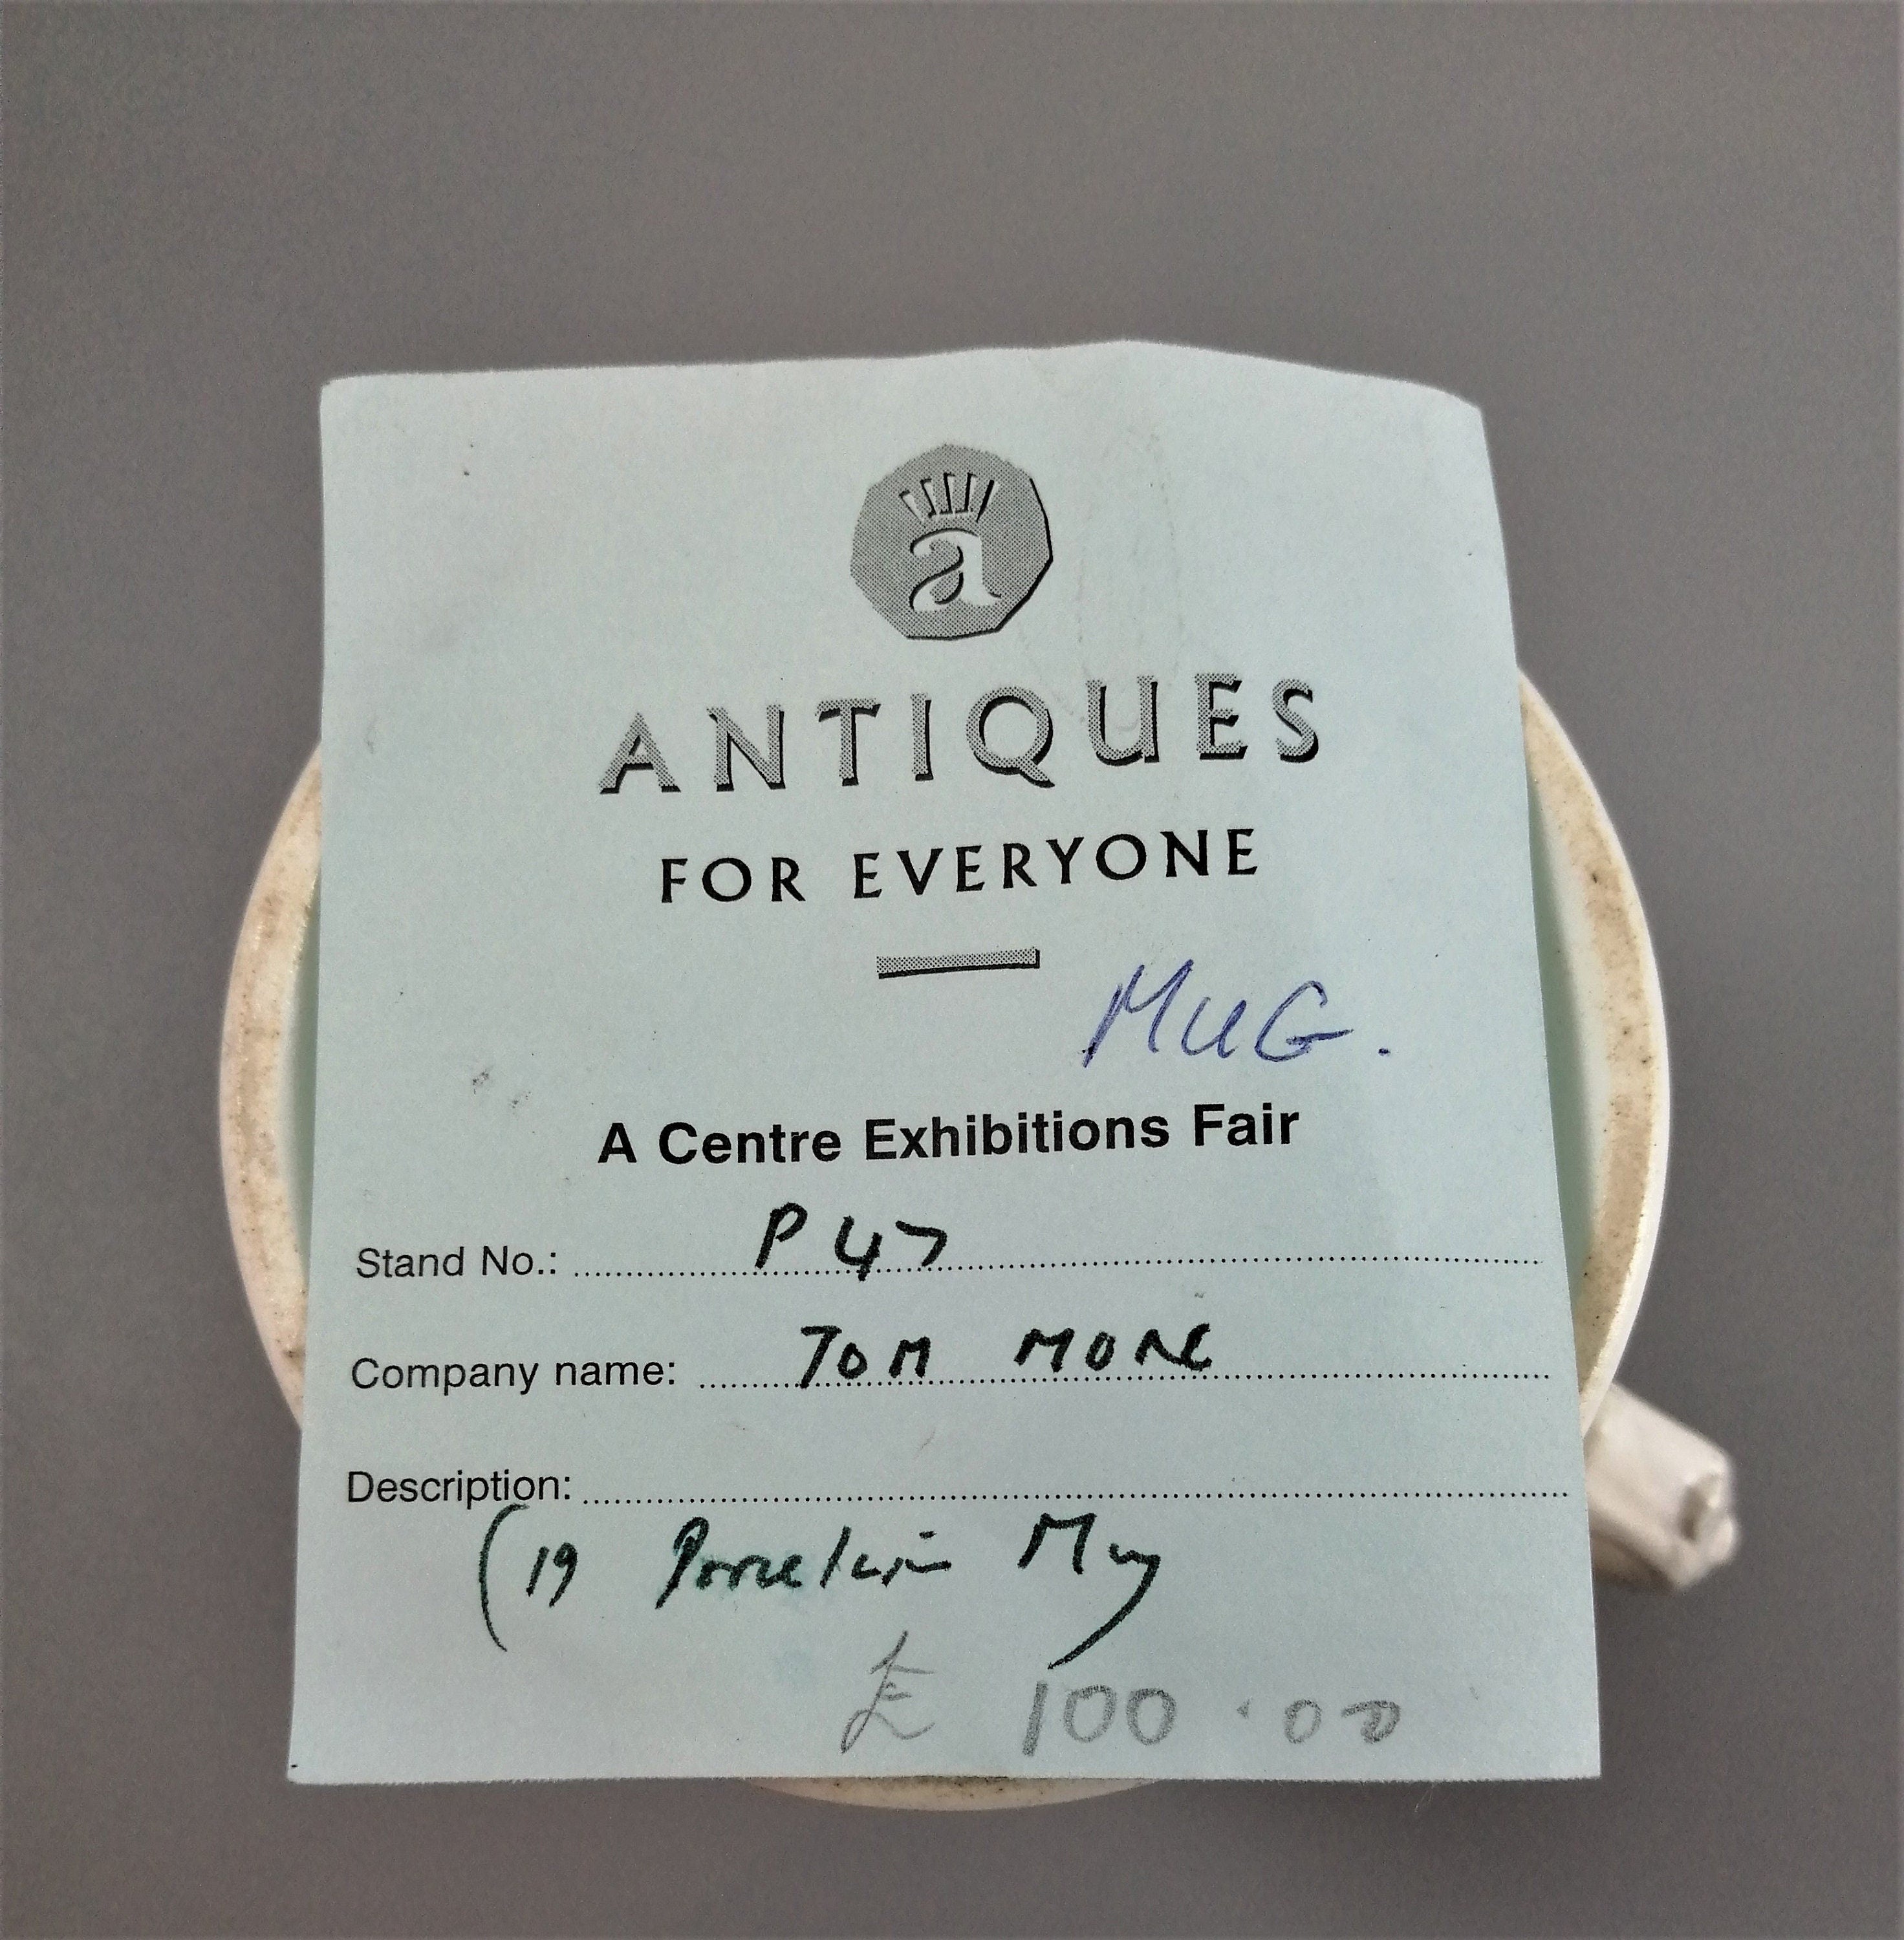 a
ANTIQUES
FOR EVERYONE
MUG.
A Centre Exhibitions Fair
Stand No.: P 47
Company name: TOM MORE
Description:
C19 Porcelain Mug
£ 100.00